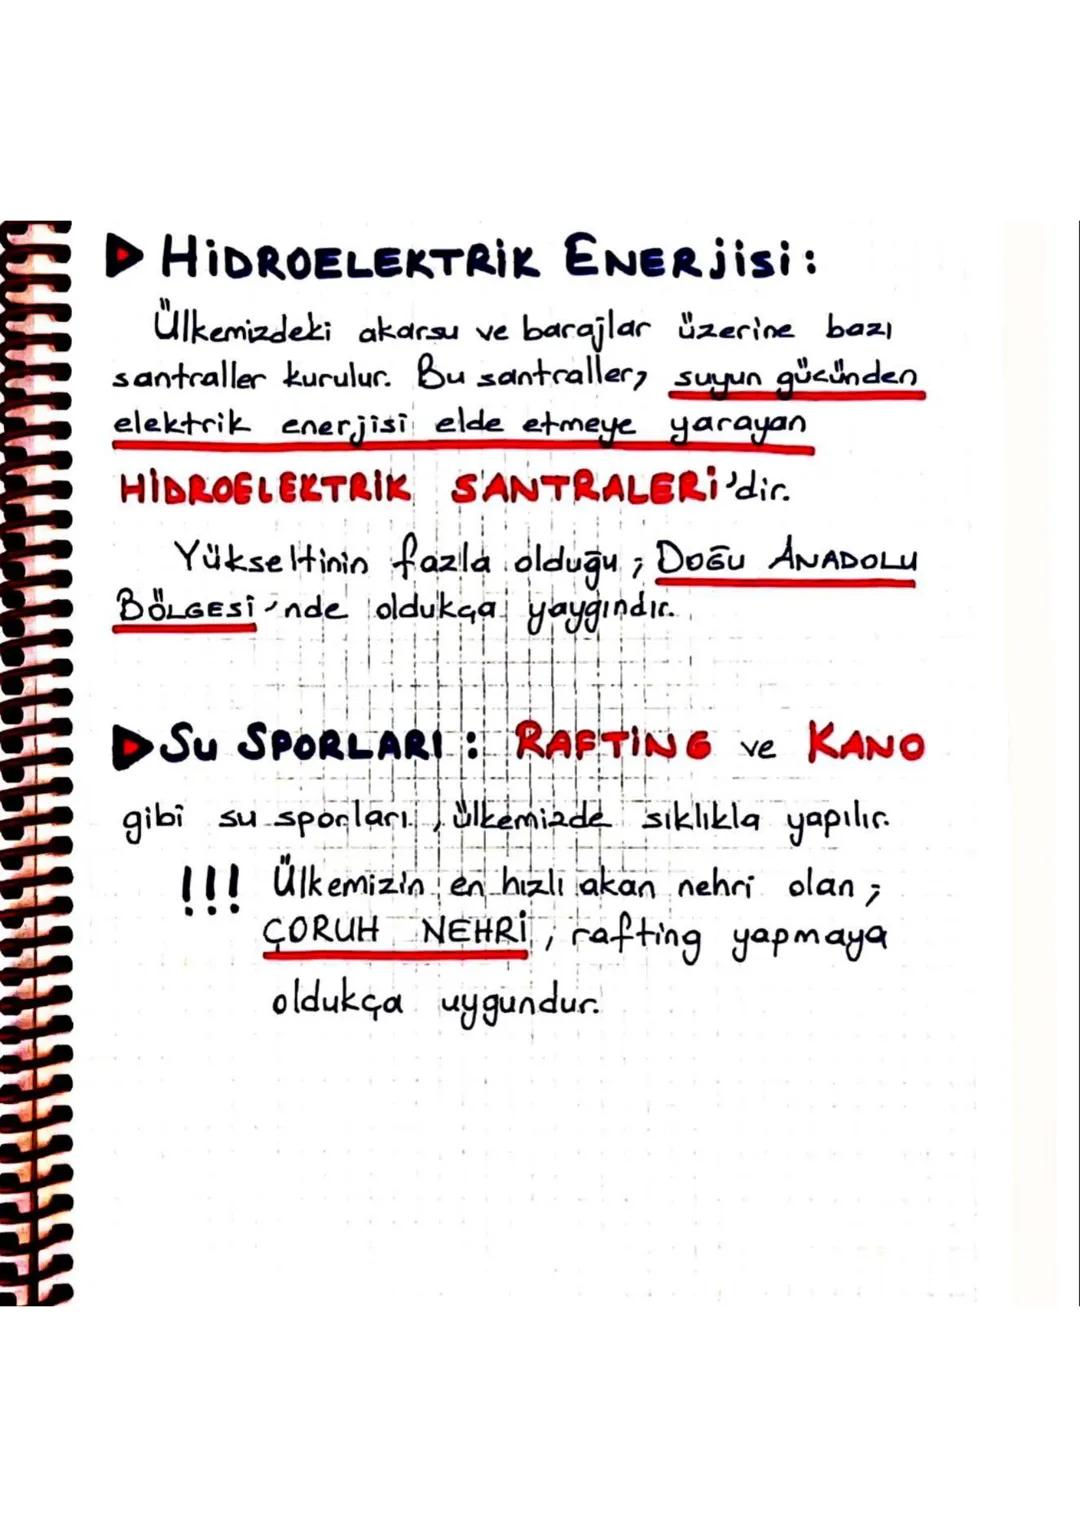 HİDROELEKTRİK ENERJİSİ:
Ülkemizdeki akarsu ve barajlar üzerine bazı
santraller kurulur. Bu santraller, suyun gücünden
elektrik enerjisi elde etmeye yarayan
HİDROELEKTRİK SANTRALERİ'dir.
Yükseltinin fazla olduğu ; DOĞU ANADOLU
BÖLGESİ'nde oldukça yaygındır.
SU SPORLARI : RAFTİNG ve KANO
gibi su sporları, ülkemizde sıklıkla yapılır.
!!! Ülkemizin en hızlı akan nehri olan ;
ÇORUH NEHRİ, rafting yapmaya
oldukça uygundur.